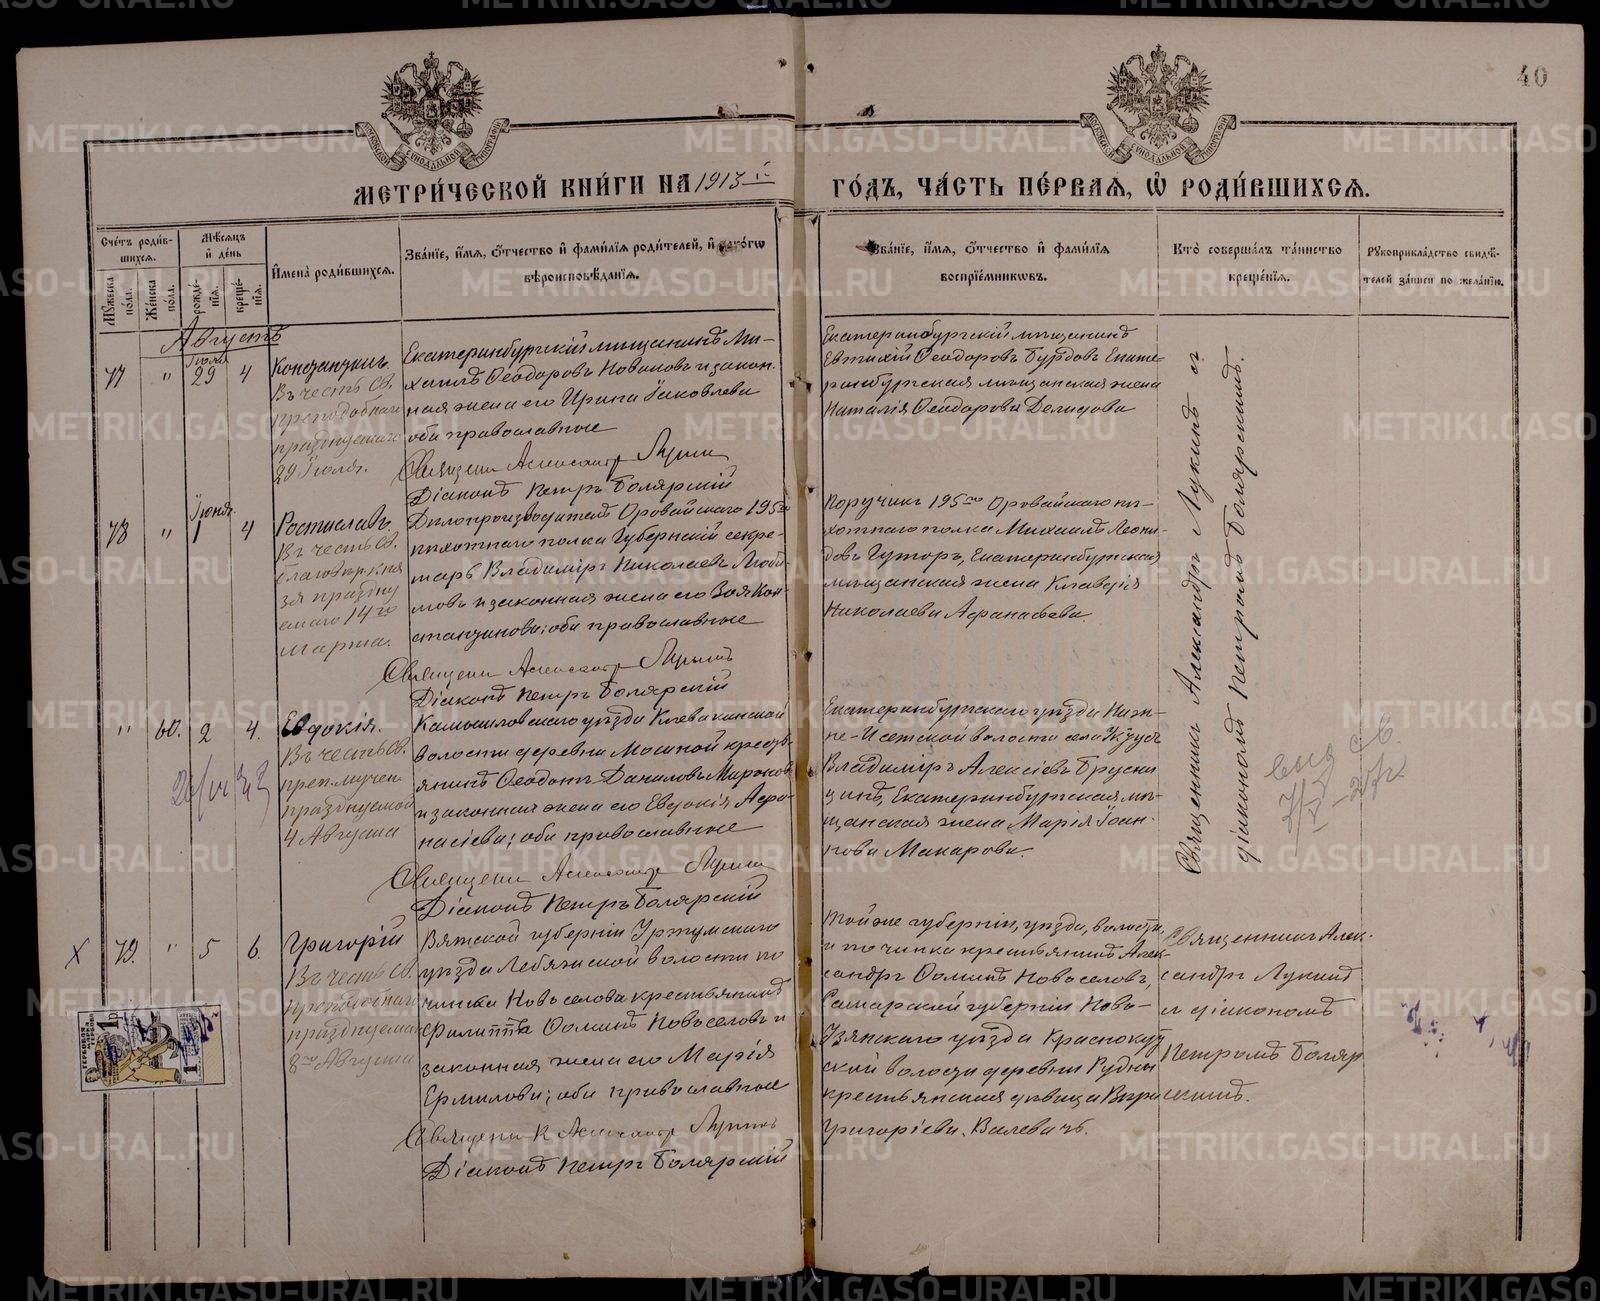 40
МЕТРИЧЕСКОЙ КНИГИ НА 1913 Г.
ГОДЪ, ЧАСТЬ ПЕРВАЯ, О РОДИВШИХСЯ.
Счетъ родив-
шихся.
Мужеска пола.
Женска пола.
Мѣсяцъ
и день
рожде-
нія.
креще-
нія.
Имена родившихся.
Званіе, имя, отчество и фамилія родителей, и какого
вѣроисповѣданія.
Званіе, имя, отчество и фамилія
воспріемниковъ.
Кто совершалъ таинство
крещенія.
Рукоприкладство свидѣ-
телей записи по желанію.
Августъ
77 " Іюля 29 4
Константинъ.
Въ честь Св.
преподобнаго
празднуемаго
29 Іюля.
Екатеринбургскій мѣщанинъ Ми-
хаилъ Ѳеодоровъ и закон-
ная жена его Ирина Іаковлева
оба православные
Священ Александръ Лукинъ
Діаконъ Петръ Боляркій
Екатеринбургскій мѣщанинъ
Евтихій Ѳеодоровъ Екате-
ринбургская мѣщанская жена
Наталія Ѳеодорова Демидова
78 " Іюня 1 4
Ростиславъ.
Въ честь Св.
благовѣр князя
празднуемаго
14го
Марта.
Дѣлопроизводитель Оровайскаго 195го
пѣхотнаго полка Губернскій секре-
тарь Владиміръ Николаевъ Люби-
мовъ и законная жена его Зоя Кон-
стантинова; оба православные
Священ Александръ Лукинъ
Діаконъ Петръ Болярскій
Поручикъ 195го Оровайскаго пѣ-
хотнаго полка Михаилъ Леони-
довъ Екатеринбургская
мѣщанская жена Клавдія
Николаева Аѳанасьева.
" 60. 2 4.
Евдокія.
Въ честь Св.
преп. мучен.
празднуемой
4 Августа
Камышловскаго уѣзда Клевакинской
волости деревни Мосиной кресть-
янинъ Ѳеодотъ Даниловъ Мироновъ
и законная жена его Евдокія Аѳа-
насіева; оба православные
Священ Александръ Лукинъ
Діаконъ Петръ Болярскій
Екатеринбургскаго уѣзда Ниж-
не-Исетской волости села
Владиміръ Алексіевъ Брусни-
цинъ, Екатеринбургская мѣ-
щанская жена Марія Іоан-
нова Макарова.
Священникъ Александръ Лукинъ съ
діакономъ Петромъ Болярскимъ.
X 79. " 5 6.
Григорій
Въ честь Св.
преподобнаго
празднуемаго
8го Августа
Вятской губерніи Уржумскаго
уѣзда Лебяжской волости по-
чинка Новоселова крестьянинъ
Филиппъ Ѳоминъ Новоселовъ и
законная жена его Марія
Ермилова; оба православные
Священник Александръ Лукинъ
Діаконъ Петръ Болярскій
Той же губерніи, уѣзда, волости,
и починка крестьянинъ Алек-
сандръ Ѳоминъ Новоселовъ,
Самарской губерніи Ново-
Узенскаго уѣзда Краснокут-
ской волости деревни
крестьянская дѣвица
Григоріева Валевачъ.
Священникъ Алек-
сандръ Лукинъ
и діакономъ
Петромъ Боляр-
скимъ.
METRIKI.GASO-URAL.RU